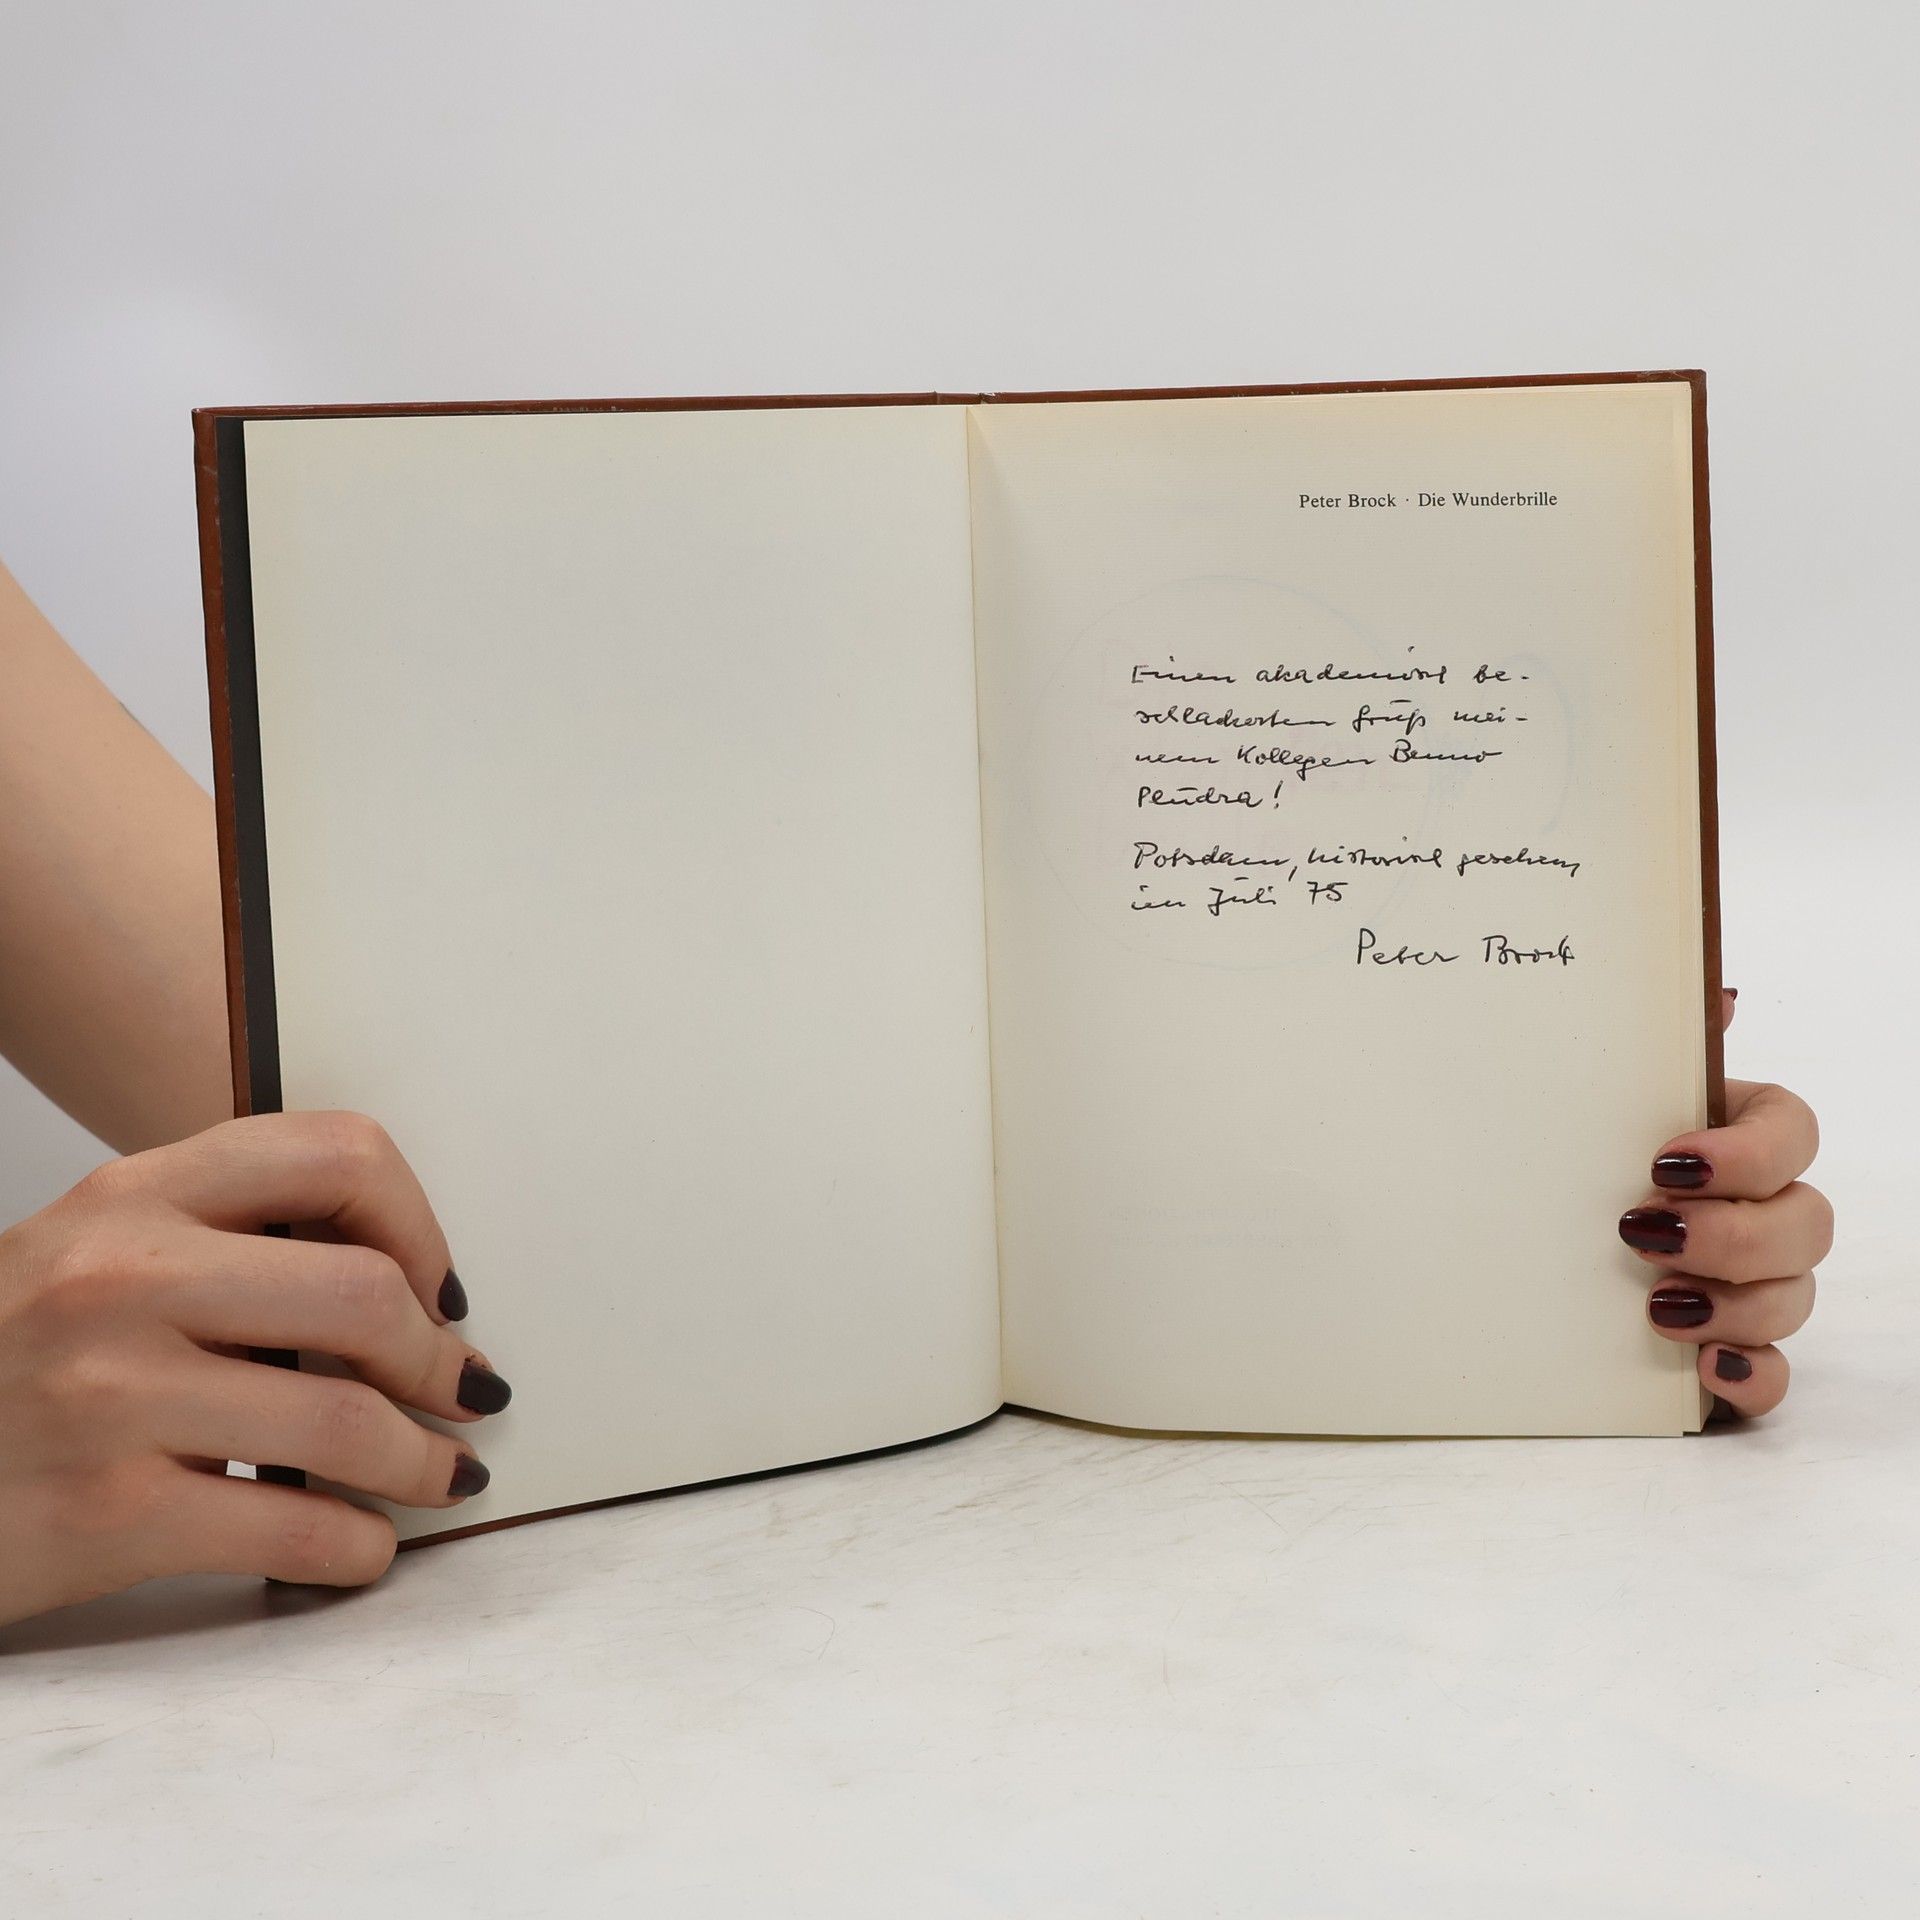 Peter Brock · Die Wunderbrille
Einen akademisch be-
schlackerten Gruß mei-
nem Kollegen Benno
Pludra!
Potsdam, historisch gesehen,
im Juli 75
Peter Brock